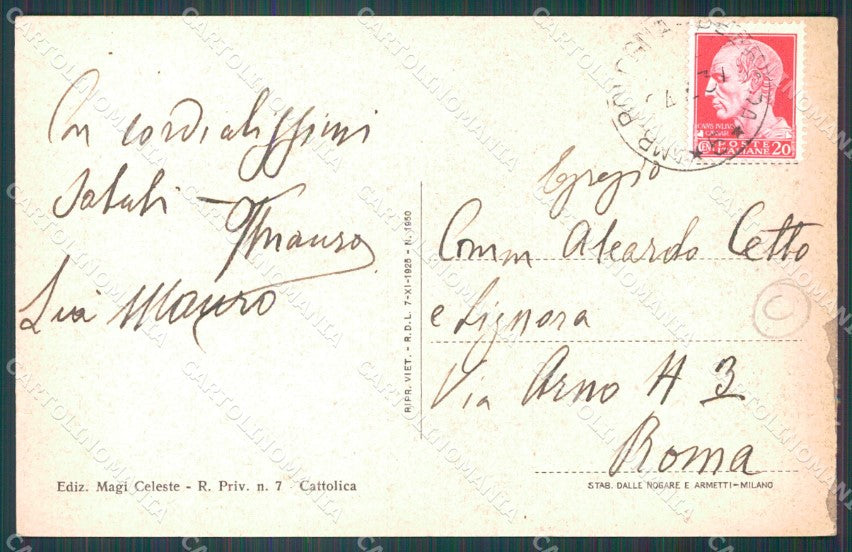 Con cordialissimi
saluti —
Mauro
Lia Mauro
Egregio
Comm Aleardo Cetto
e Signora
Via Arno N 3
Roma
RIPR. VIET. - R.D.L. 7-XI-1925 - N. 1950
Ediz. Magi Celeste - R. Priv. n. 7 - Cattolica
STAB. DALLE NOGARE E ARMETTI - MILANO
CAIVS IVLIVS
CAESAR
CENT. POSTE ITALIANE 20
C
CARTOLINOMANIA